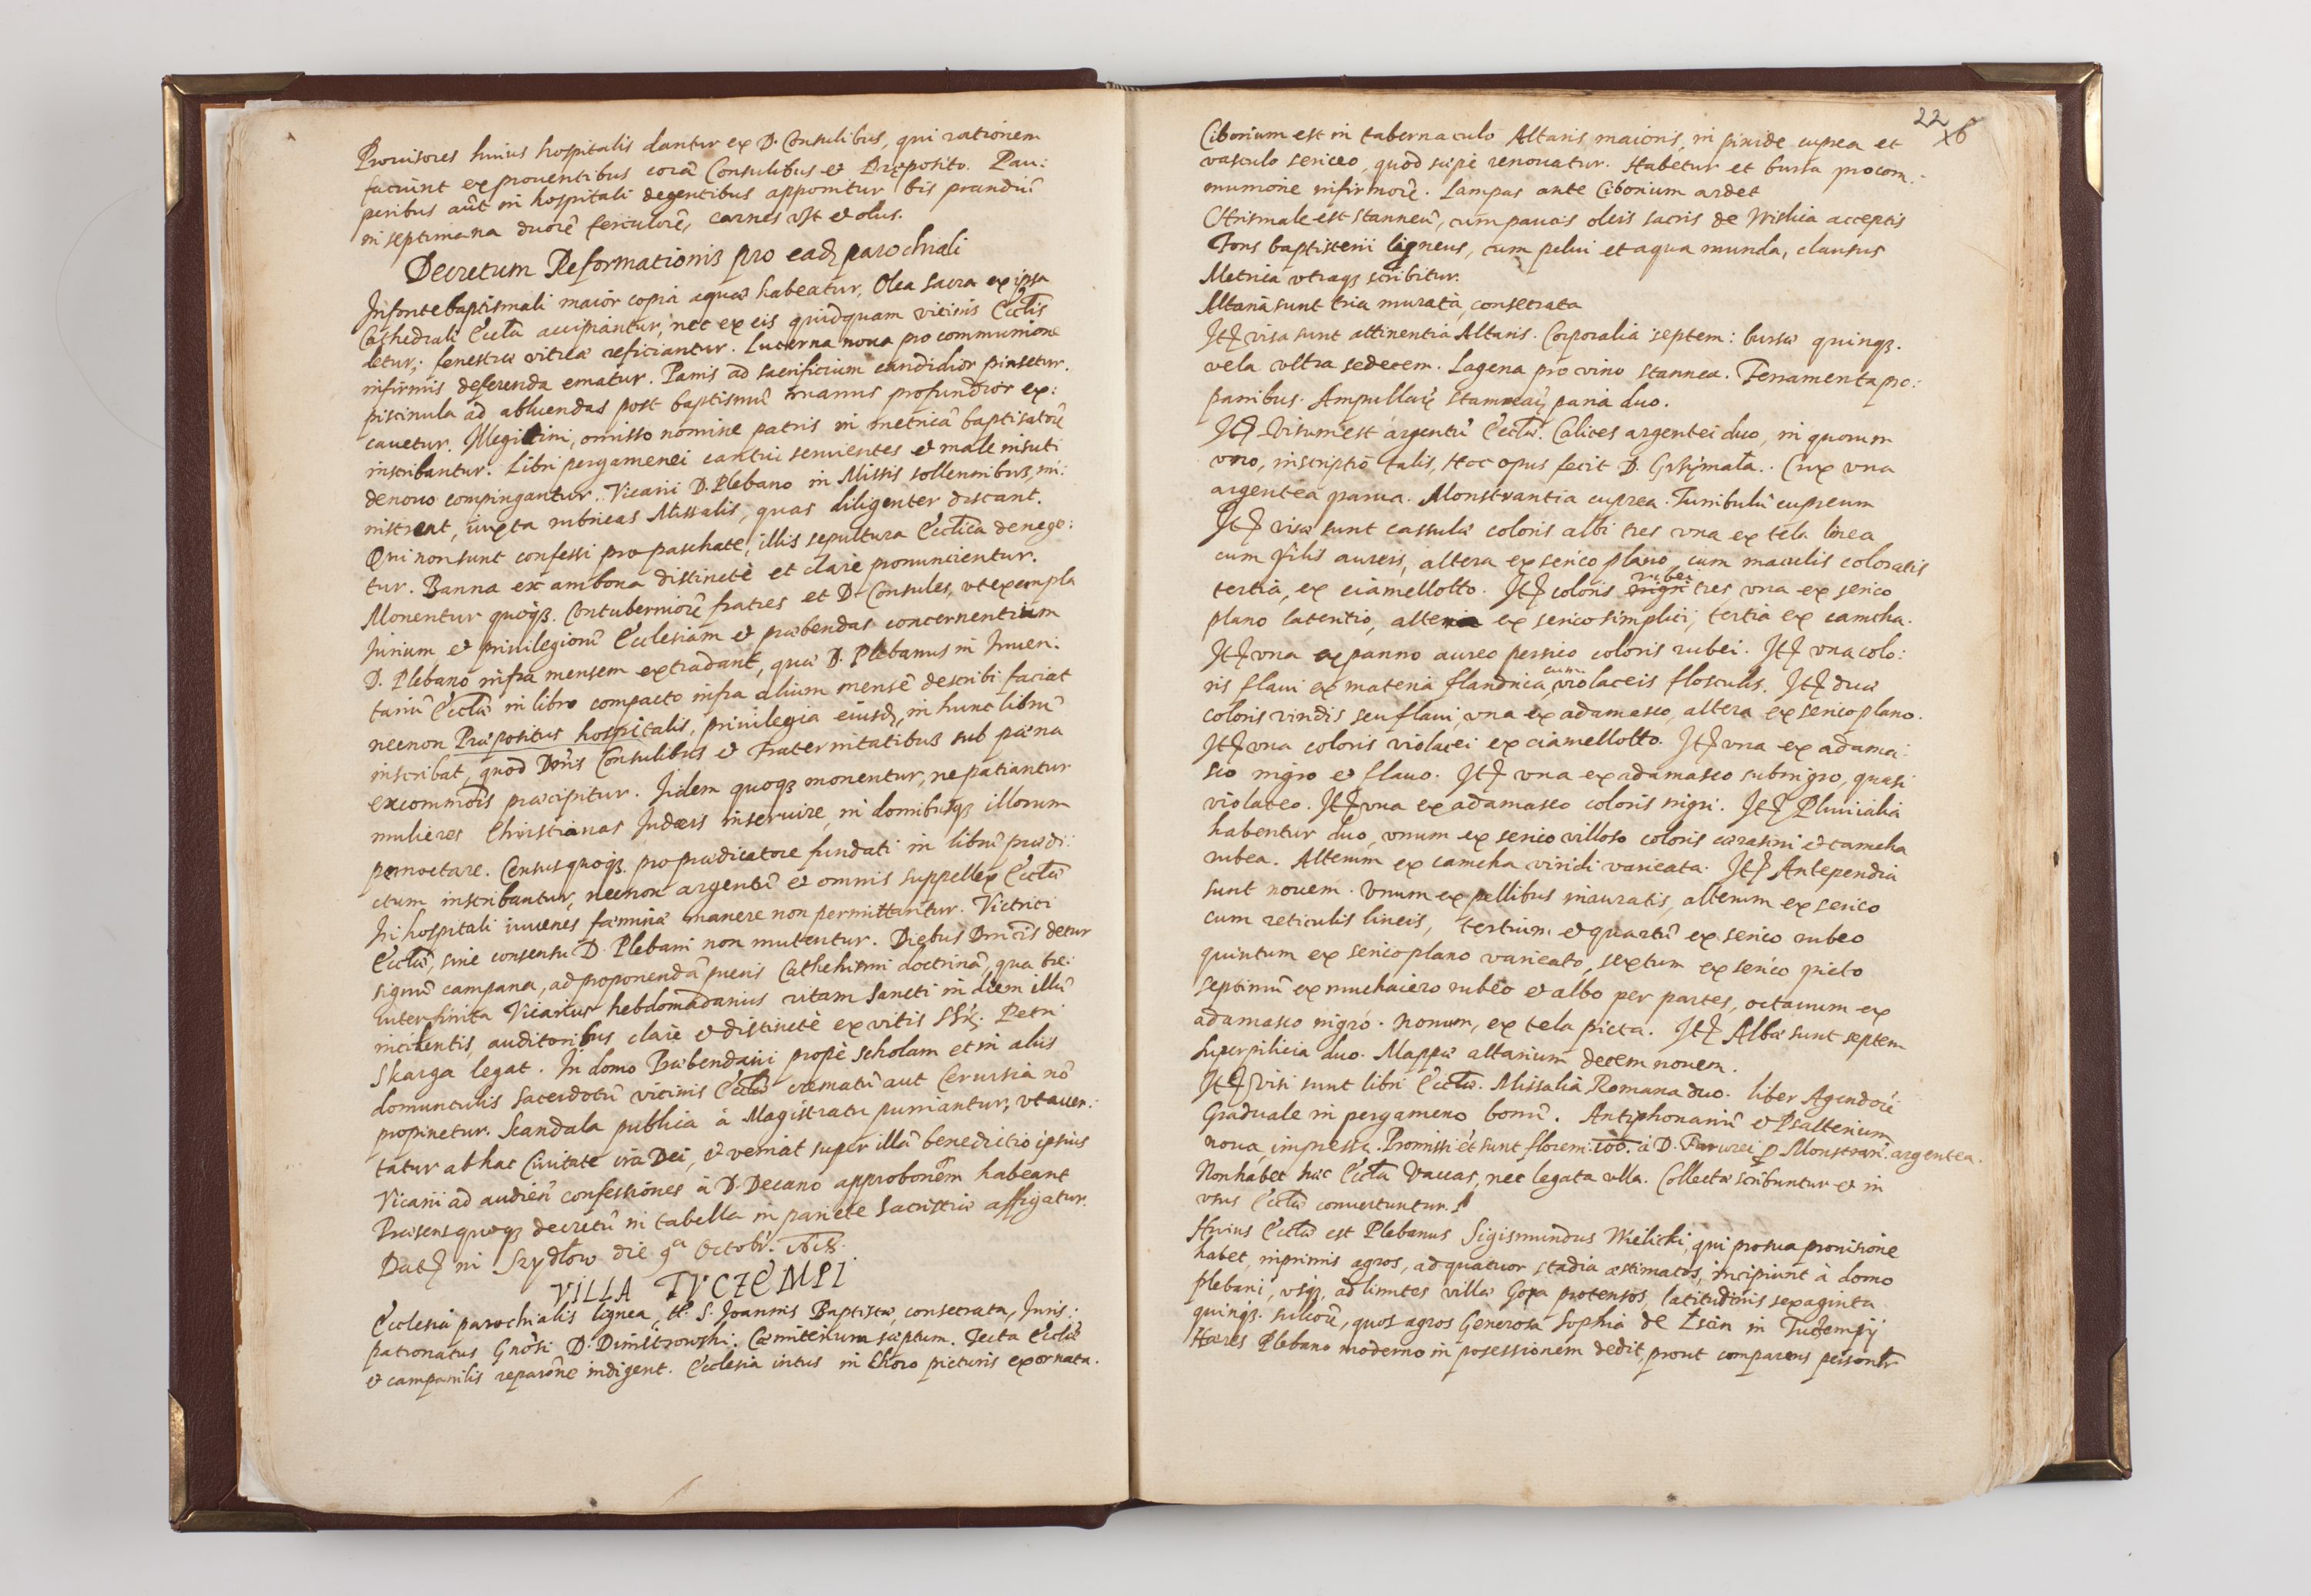 Prouisores huius hospitalis dantur ex D. Consulibus, qui rationem
faciunt ex prouentibus corā Consulibus et Pręposito. Pau:
peribus aūt in hospitali degentibus apponitur bis prandiū
in septimana duorū ferculorū, carnes vst et olus.
Decretum Reformationis pro eadꝫ parochiali
In fonte baptismali maior copia aquæ habeatur, Olea sacra ex ipsa
Cathedrali Eccła accipiantur, nec ex eis quidquam vicinis Eccłis
detur; fenestræ vitreæ reficiantur. Lucerna noua pro communione
infirmis deferenda ematur. Panis ad sacrificium candidior pinsetur.
piscinula ad abluendas post baptismū manus profundior ex:
cauetur. Illegitimi, omisso nomine patris in metricā baptisatorū
inscribantur. Libri pergamenei cantui seruientes et male insuti
denouo compingantur. Vicarii D. Plebano in Missis sollennibus, mi:
nistrent, iuxta rubricas Missalis, quas diligenter discant.
Qui non sunt confessi pro paschate, illis sepultura Eccłica denege:
tur. Banna ex ambona distinctè et clare pronuncientur.
Monentur quoqꝫ. Contuberniorū fratres et D. Consules, vt exempla
Iurium et priuilegiorū Ecclesiam et præbendas concernentium
D. Plebano infra mensem extradant, quæ D. Plebanus in Inuen:
tariū Eccłæ in libro compacto infra alium mensē describi faciat
necnon Præpositus hospitalis, priuilegia eiusdꝫ, in hunc librū
inscribat, quod Dn̄is Consulibus et Fraternitatibus sub pæna
excommōis præcipitur. Iidem quoqꝫ monentur, ne patiantur
mulieres Christianas Iudæis inseruire, in domibusqꝫ illorum
pernoctare. Census quoqꝫ. pro prædicatore fundati in librū prædi:
ctum inscribantur, necnon argentū et omnis suppellex Eccłæ
In hospitali iuuenes fæminæ manere non permittantur. Victrici
Eccłæ, sine consensu D. Plebani non mutentur. Diebus Dn̄icis detur
signū campana, ad proponendā pueris Cathehismi doctrinā, qua
interfinita Vicarius hebdomadarius vitam Sancti in diem illū
incidentis, auditoribus clare et distinctè ex vitis SS. Petri
Skarga legat. In domo Præbendarii propè scholam et in aliis
domunculis sacerdotū vicinis Eccłæ crematū aut Ceruisia nō
propinetur. Scandala publica à Magistratu puniantur, vt auer:
tatur ab hac Ciuitate ira Dei, et veniat super illā benedictio ipsius
Vicarii ad audien̄ confessiones à D. Decano approbōnem habeant
Præsens quoqꝫ decretū in tabella in pariete Sacristiæ affigatur.
Datꝫ in Szydłow die 9a Octobr.
VILLA TVCZEMPI
Ecclesia parochialis lignea, tt. S. Joannis Baptistæ, consecrata, Iuris:
patronatus Gn̄osi D. Dimitrowski. Cæmiterium sæptum. Tecta Eccłæ
et campanilis reparōne indigent. Ecclesia intus in Choro picturis exornata.
22
Ciborium est in tabernaculo Altaris maioris, in pixide cuprea et
vasculo sericeo, quod sæpè renouatur. Habetur et bursa pro com:
munione infirmorū. Lampas ante Ciborium ardet
Chrismale est stanneū, cum pauais oleis sacris de Wislicia acceptis
Fons baptisterii ligneus, cum pelui et aqua munda, clausus
Metrica vtraqꝫ scribitur.
Altaria sunt tria murata, consecrata
Itꝫ visa sunt attinentia Altaris. Corporalia septem: bursæ quinqꝫ.
vela vltra sedecem. Lagena pro vino stannea. Ferramenta pro:
panibus. Ampullarū stannearū paria duo.
Itꝫ Visum est argentū Eccłæ. Calices argentei duo, in quorum
vno, inscriptio talis, Hoc opus fecit D. Grzÿmała. Crux vna
argentea parua. Monstrantia cuprea. Turribulū cupreum
Itꝫ visæ sunt cassulæ coloris albi tres vna ex tela linea
cum filis aureis, altera ex serico plano, cum maculis coloratis
tertia, ex ciamellotto. Itꝫ coloris nigri rubei tres vna ex serico
plano lateritio, altera ex serico simplici, tertia ex camcha.
Itꝫ vna ex panno aureo persico coloris rubei. Itꝫ vna colo:
ris flaui ex materia flandrica cum violaceis flosculis. Itꝫ duæ
coloris viridis seu flaui, vna ex adamasco, altera ex serico plano.
Itꝫ vna coloris violacei ex ciamellotto. Itꝫ vna ex adama:
sco nigro et flauo. Itꝫ vna ex adamasco subnigro, quasi
violaceo. Itꝫ vna ex adamasco coloris nigri. Itꝫ Pluuialia
habentur duo, vnum ex serico villoso coloris carasini et camcha
rubea. Alterum ex camcha viridi varicata. Itꝫ Antependia
sunt nouem. Vnum ex pellibus inauratis, alterum ex serico
cum reticulis lineis, tertium et quartū ex serico rubeo
quintum ex serico plano varicato, sextum ex serico picto
septimū ex muchaiero rubeo et albo per partes, octauum ex
adamasco nigro. Nonum, ex tela picta. Itꝫ Albæ sunt septem
superpilicia duo. Mappæ altarium decem nouem.
Itꝫ Visi sunt libri Eccłæ. Missalia Romana duo. liber Agendorū
Graduale in pergameno bonū. Antiphonariū et Psalterium
noua impressa. Promissi et sunt floreni: 100. à D. p Monstran: argentea.
Non habet hæc Eccła Vaccas, nec legata vlla. Collectæ scribuntur et in
vsus Eccłæ conuertuntur.
Huius Eccłæ est Plebanus Sigismundus Wielicki, qui pro sua prouisione
habet, inprimis agros, ad quatuor stadia æstimatos, incipiunt à domo
plebani, vsqꝫ. ad limites villæ Gora protensos, latitudinis sexaginta
quinqꝫ. sulcorū, quos agros Generosa Sophia de in Tuczempÿ
Hæres Plebano moderno in possessionem dedit, prout comparens